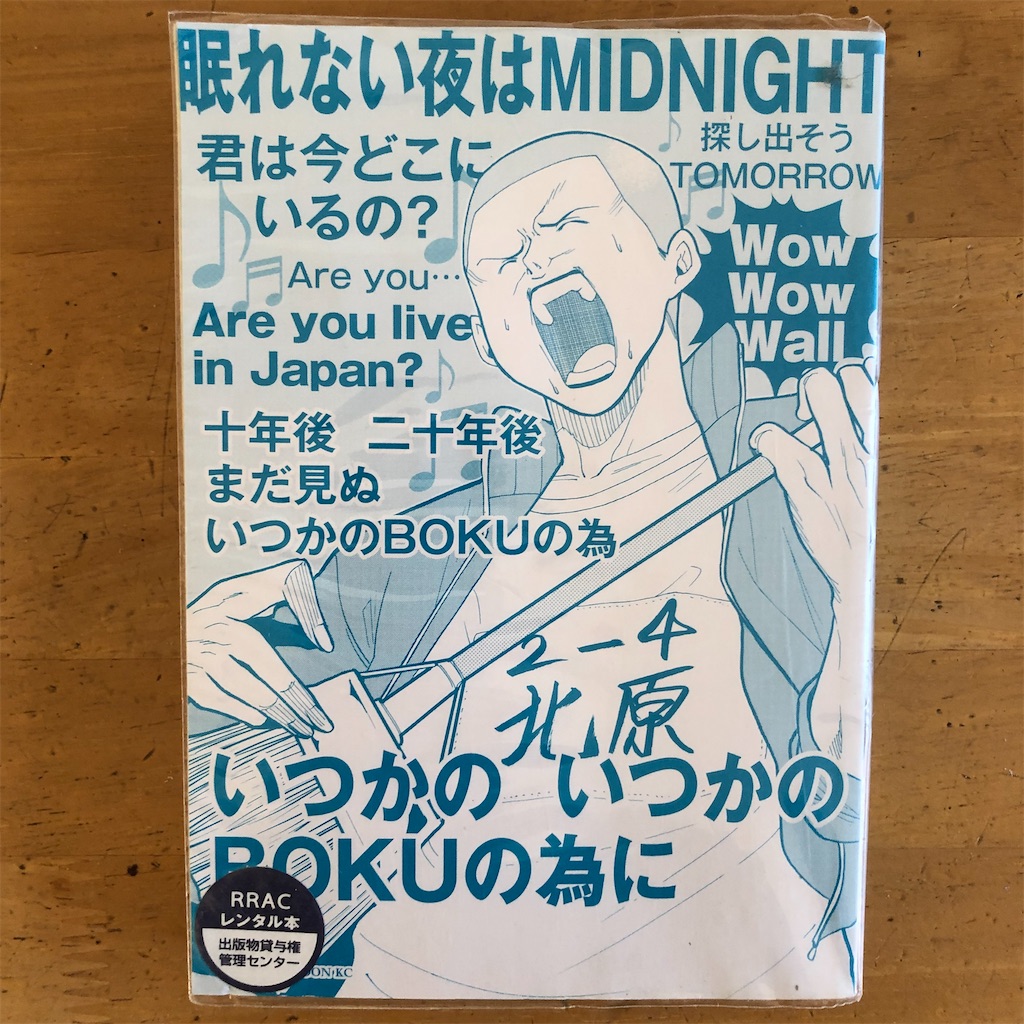 眠れない夜はMIDNIGHT
君は今どこに
いるの?
探し出そう
TOMORROW
Wow
Wow
Wall
Are you…
Are you live
in Japan?
十年後 二十年後
まだ見ぬ
いつかのBOKUの為
2-4
北原
いつかの いつかの
BOKUの為に
RRAC
レンタル本
出版物貸与権
管理センター
KC